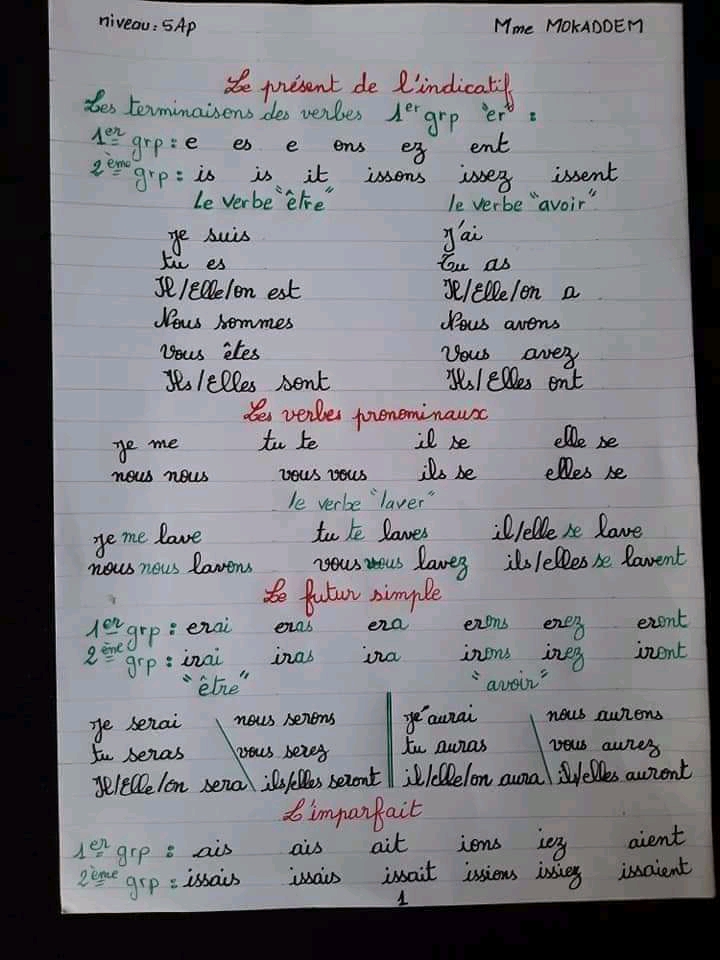 niveau: 5Ap Mme MOKADDEM
Le présent de l'indicatif
Les terminaisons des verbes 1er grp "er" :
1er grp : e es e ons ez ent
2ème grp : is is it issons issez issent
le verbe "être" le verbe "avoir"
Je suis J'ai
tu es Tu as
Il/Elle/on est Il/Elle/on a
Nous sommes Nous avons
Vous êtes Vous avez
Ils/Elles sont Ils/Elles ont
Les verbes pronominaux
je me tu te il se elle se
nous nous vous vous ils se elles se
le verbe "laver"
je me lave tu te laves il/elle se lave
nous nous lavons vous vous lavez ils/elles se lavent
Le futur simple
1er grp : erai eras era erons erez eront
2ème grp : irai iras ira irons irez iront
"être" "avoir"
je serai nous serons je aurai nous aurons
tu seras vous serez tu auras vous aurez
Il/Elle/on sera ils/elles seront il/elle/on aura ils/elles auront
L'imparfait
1er grp : ais ais ait ions iez aient
2ème grp : issais issais issait issions issiez issaient
1